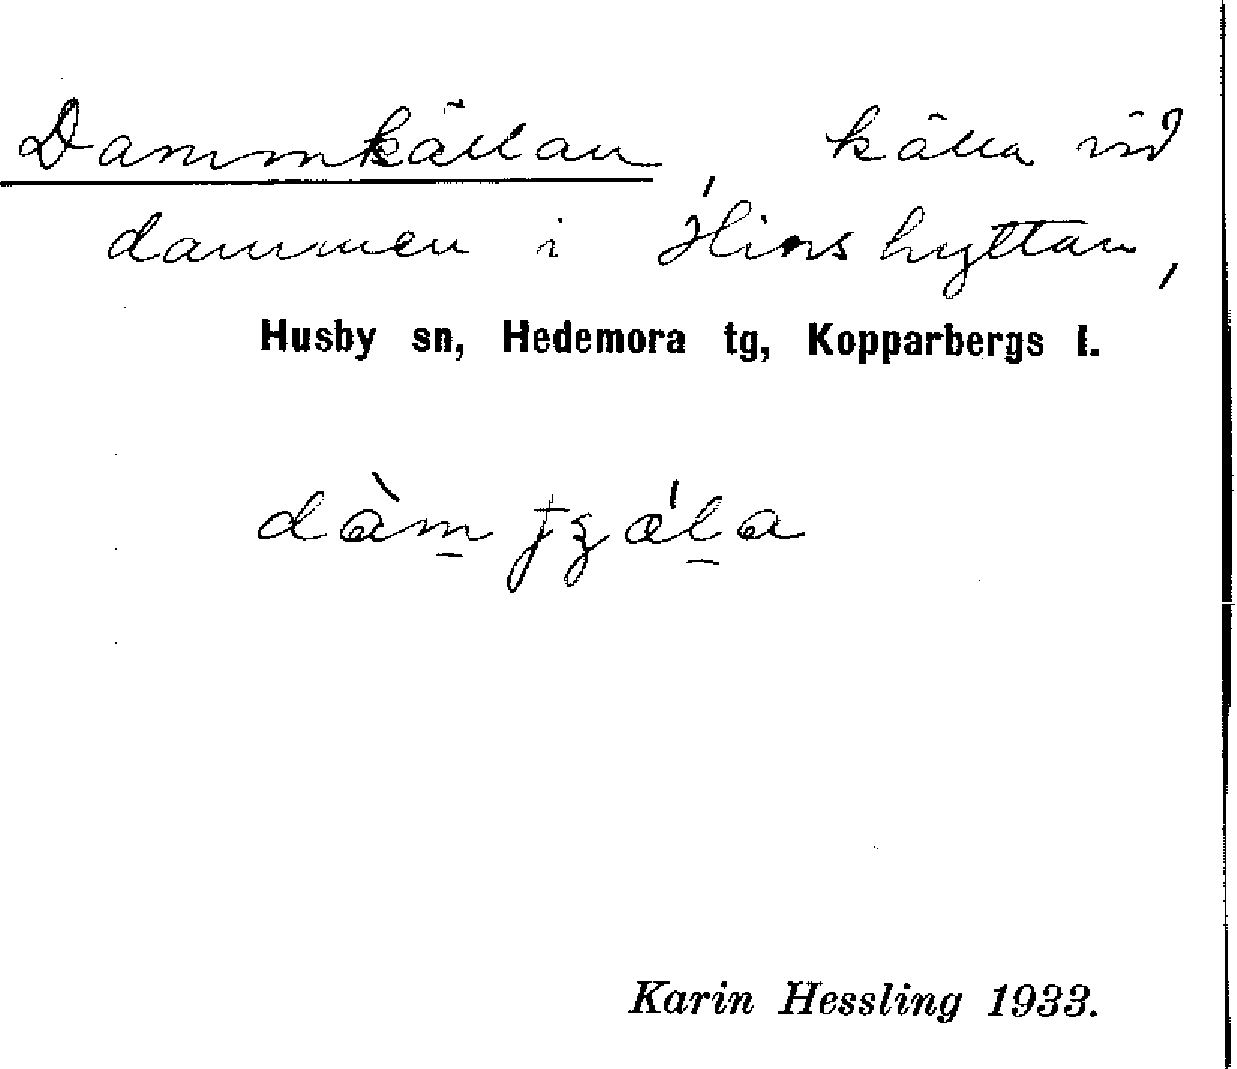 Dammkällan, källa vid
dammen i Hinshyttan,
Husby sn, Hedemora tg, Kopparbergs l.
Karin Hessling 1933.